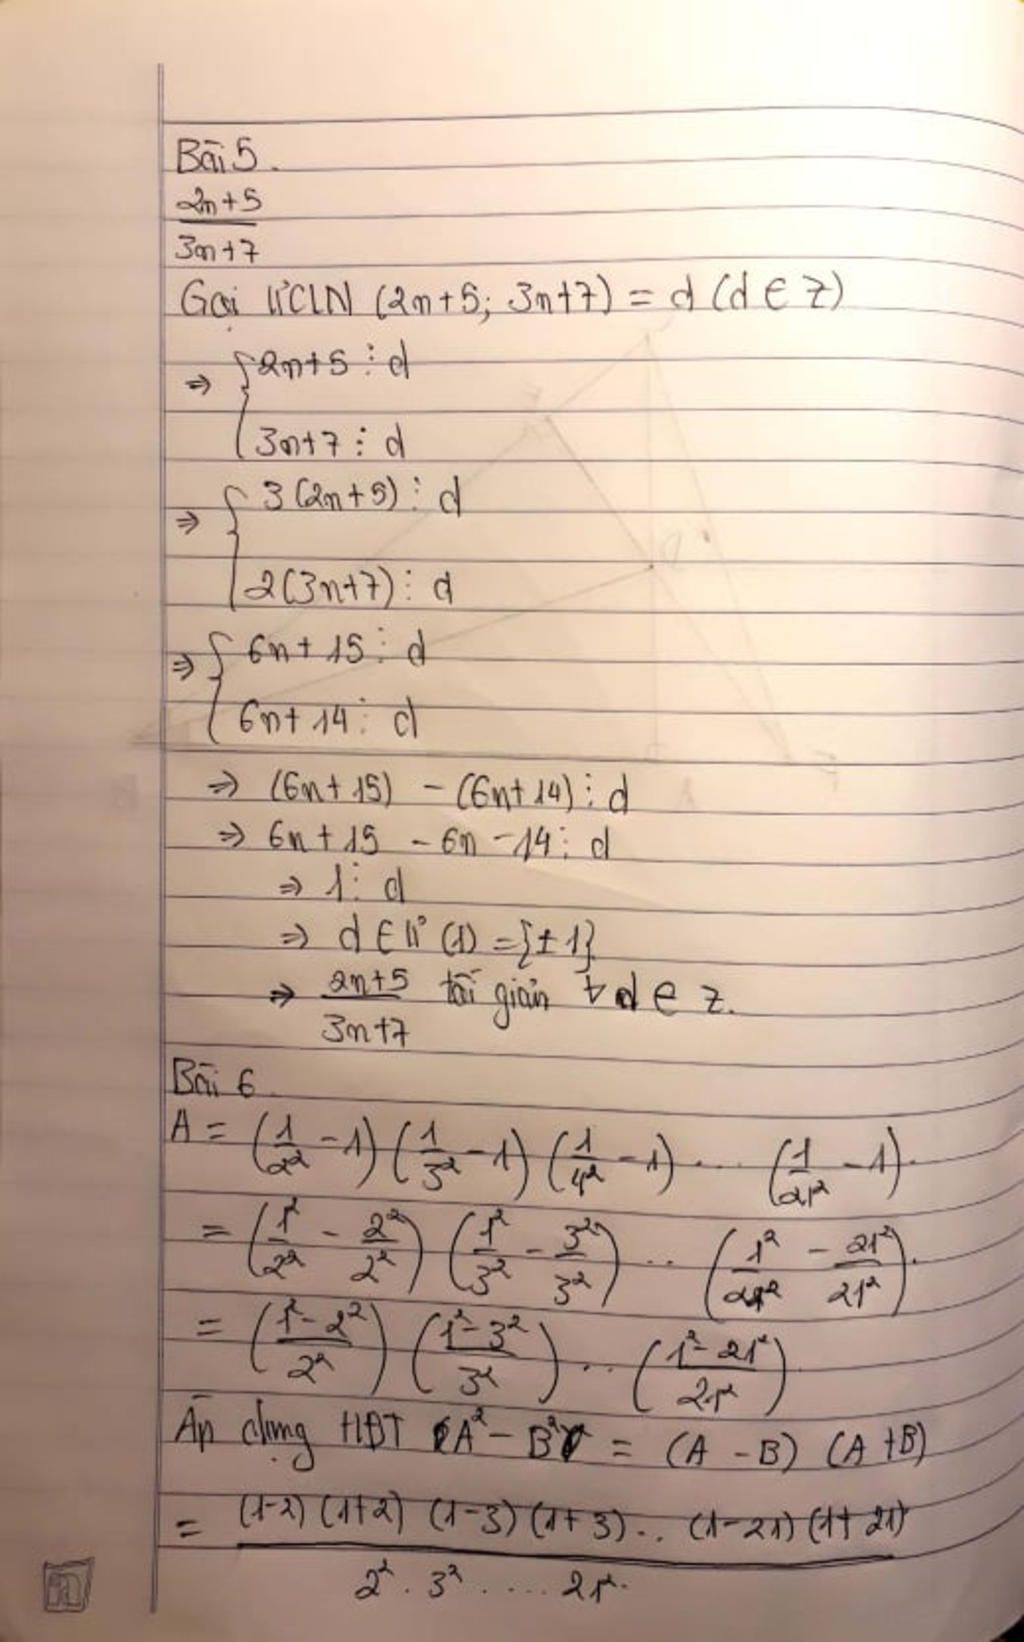 Bài 5.
2n+5
3n+7
Gọi ƯCLN (2n+5; 3n+7) = d (d ∈ Z)
⇒ { 2n+5 ⋮ d
3n+7 ⋮ d
⇒ { 3(2n+5) ⋮ d
2(3n+7) ⋮ d
⇒ { 6n+15 ⋮ d
6n+14 ⋮ d
⇒ (6n+15) - (6n+14) ⋮ d
⇒ 6n+15 - 6n - 14 ⋮ d
⇒ 1 ⋮ d
⇒ d ∈ Ư (1) = {±1}
⇒ 2n+5/3n+7 tối giản ∀ d ∈ Z.
Bài 6
A = (1/2² - 1) (1/3² - 1) (1/4² - 1) ... (1/21² - 1)
= (1²/2² - 2²/2²) (1²/3² - 3²/3²) ... (1²/21² - 21²/21²)
= (1² - 2²/2²) (1² - 3²/3²) ... (1² - 21²/21²)
Áp dụng HĐT A² - B² = (A - B) (A + B)
= (1-2) (1+2) (1-3) (1+3) ... (1-21) (1+21)
2² . 3² .... 21²